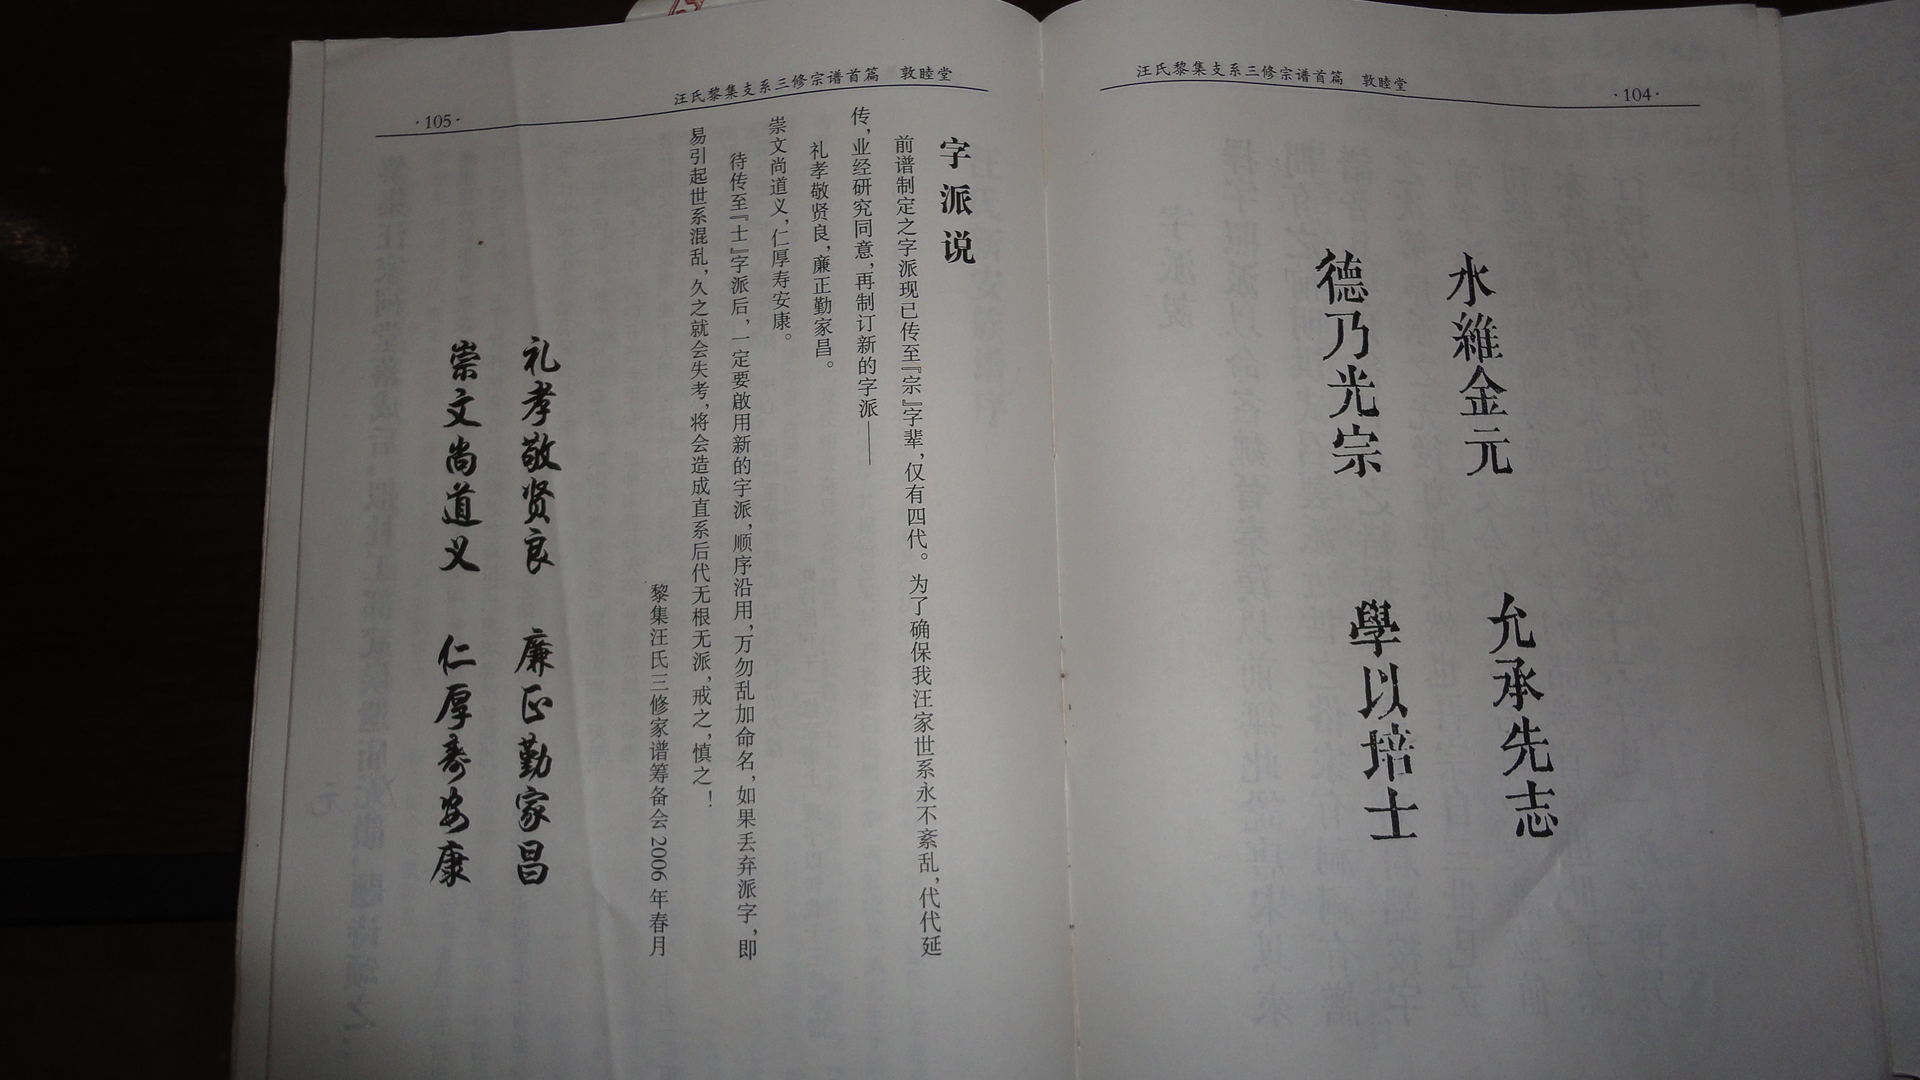 汪氏黎集支系三修宗谱首篇 敦睦堂
·104·
水維金元 允承先志
德乃光宗 學以培士
汪氏黎集支系三修宗谱首篇 敦睦堂
·105·
字派说
前谱制定之字派现已传至『宗』字辈，仅有四代。为了确保我汪家世系永不紊乱，代代延
传，业经研究同意，再制订新的字派——
礼孝敬贤良，廉正勤家昌。
崇文尚道义，仁厚寿安康。
待传至『士』字派后，一定要啟用新的字派，顺序沿用，万勿乱加命名，如果丢弃派字，即
易引起世系混乱，久之就会失考，将会造成直系后代无根无派，戒之，慎之！
黎集汪氏三修家谱筹备会 2006 年春月
礼孝敬贤良 廉正勤家昌
崇文尚道义 仁厚寿安康